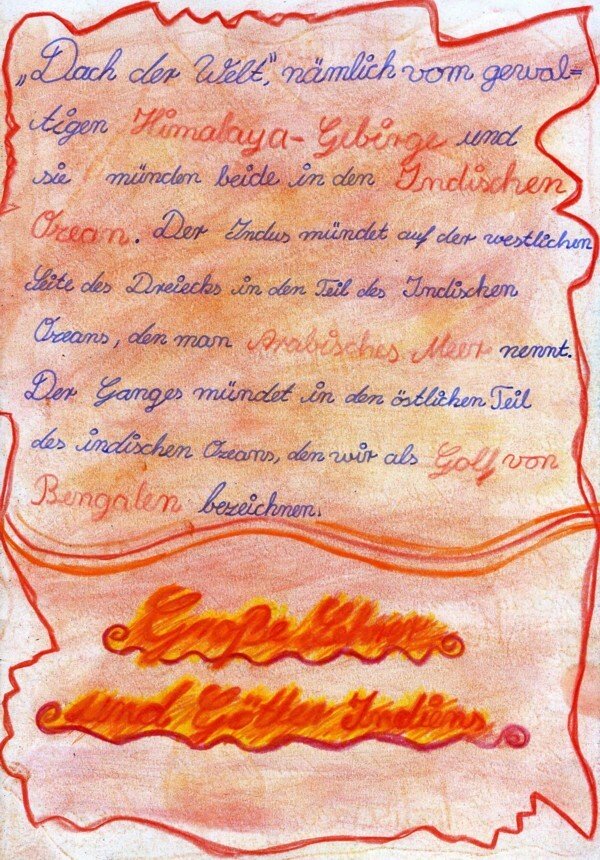 „Dach der Welt“, nämlich vom gewal=
tigen Himalaya-Gebirge und
sie münden beide in den Indischen
Ozean. Der Indus mündet auf der westlichen
Seite des Dreiecks in den Teil des Indischen
Ozeans, den man Arabisches Meer nennt.
Der Ganges mündet in den östlichen Teil
des indischen Ozeans, den wir als Golf von
Bengalen bezeichnen.
Große Lehrer
und Götter Indiens